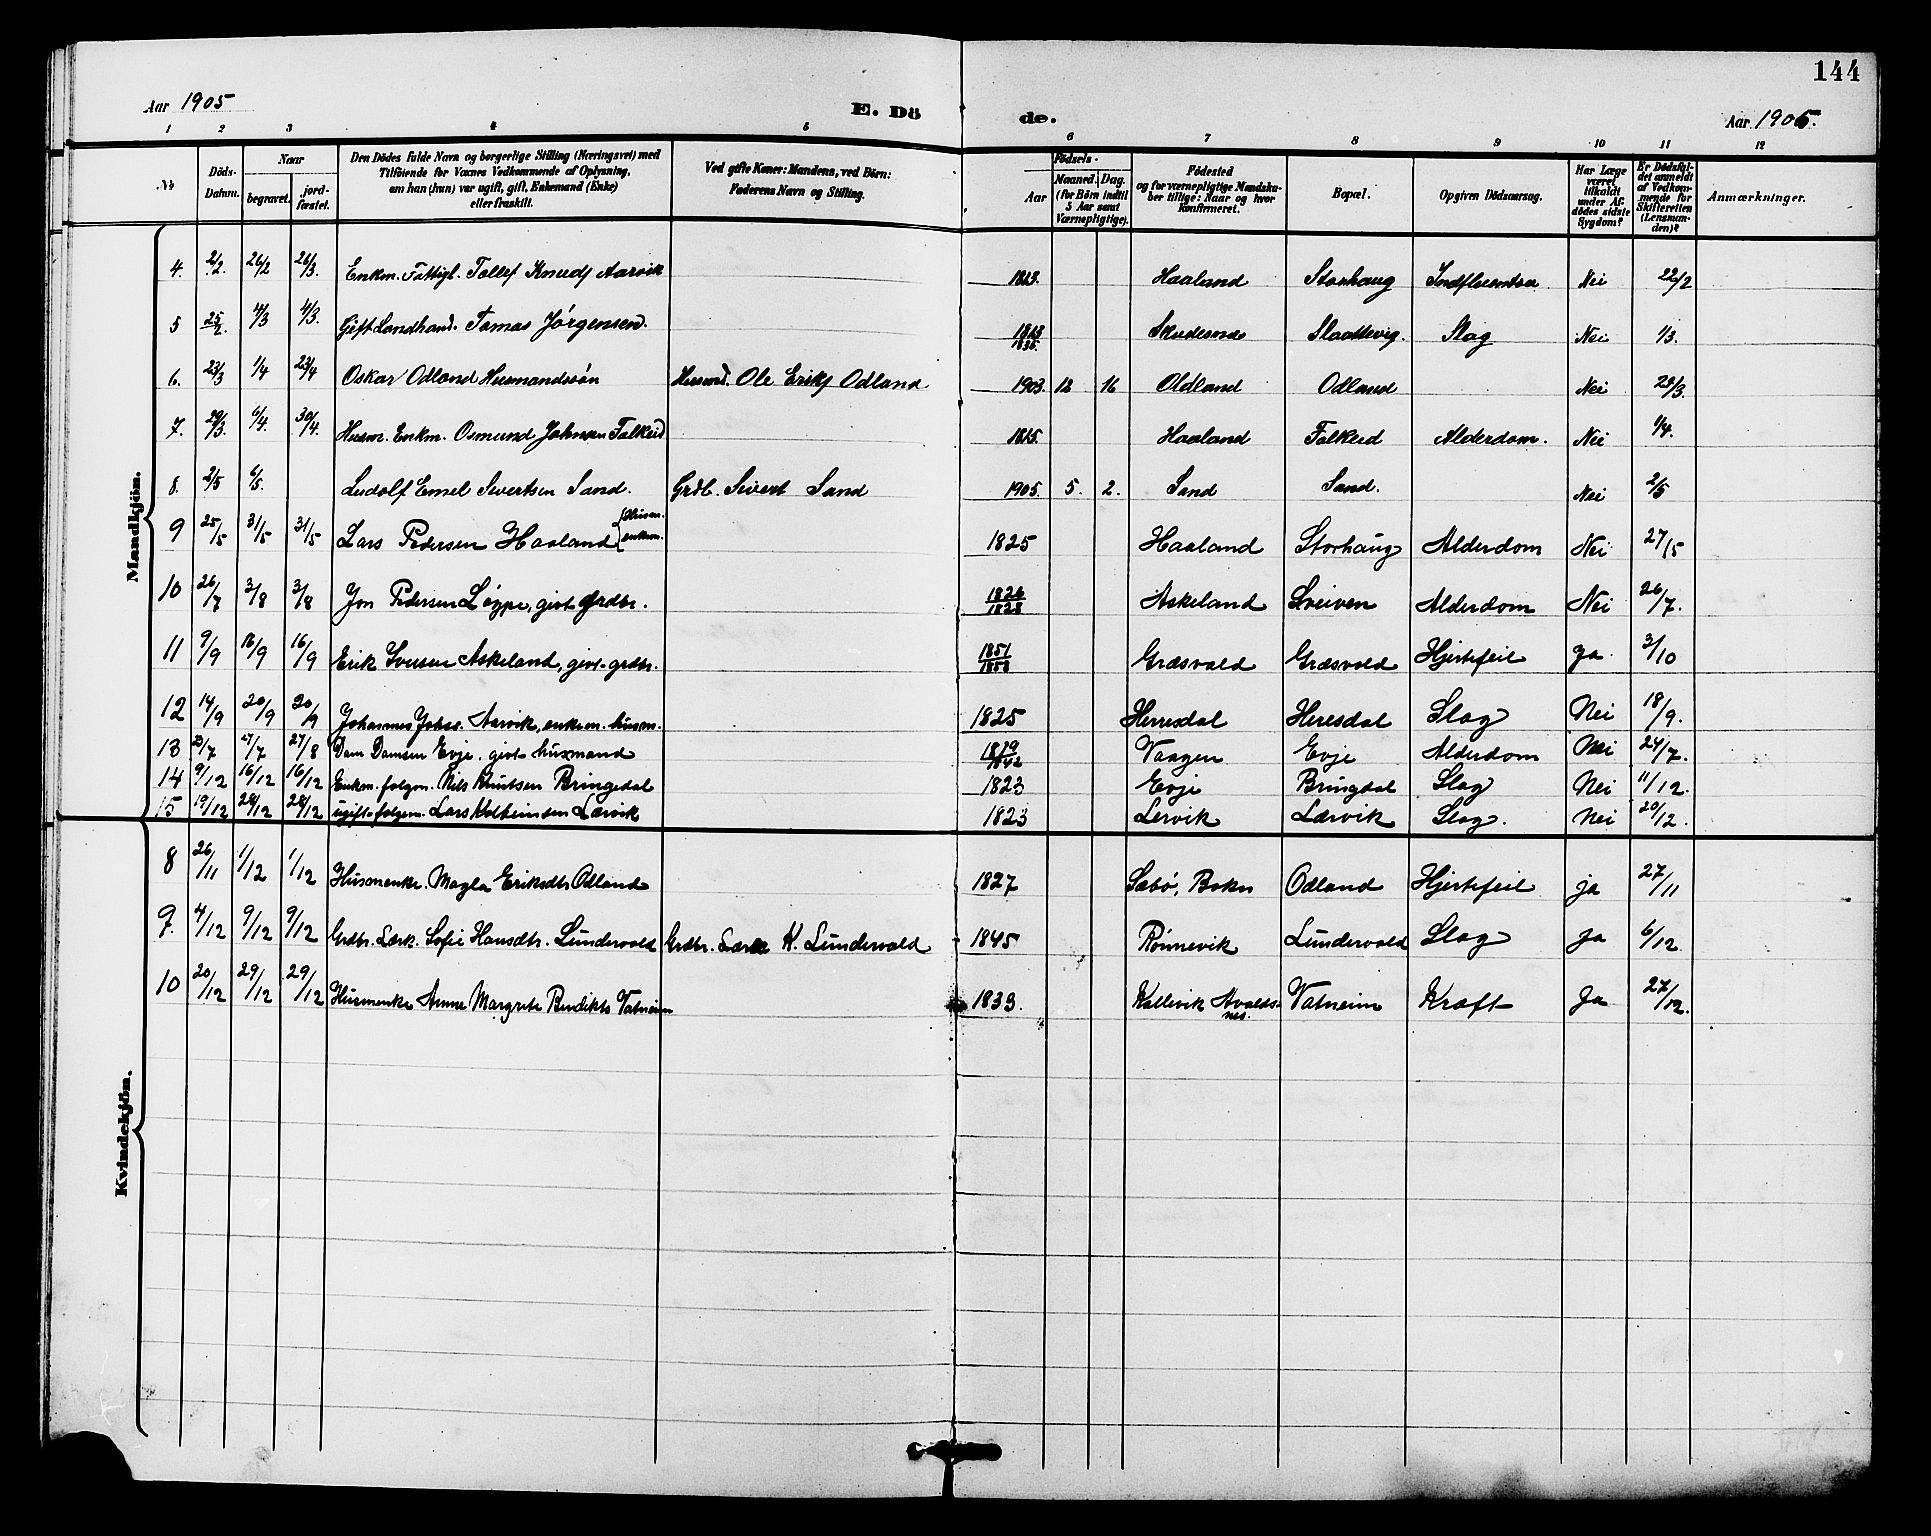 144
Aar 1905
E. Dö
de.
Aar 1905.
1 2 3 4 5 6 7 8 9 10 11 12
№
Döds-Datum.
Naar
begravet.
jord-fæstet.
Den Dödes fulde Navn og borgerlige Stilling (Næringsvei) med
Tilföiende for Voxnes Vedkommende af Oplysning,
om han (hun) var ugift, gift, Enkemand (Enke)
eller fraskilt.
Ved gifte Koner: Mandens, ved Börn:
Faderens Navn og Stilling.
Födsels-
Aar
Maaned. Dag.
(for Börn indtil
5 Aar samt
Værnepligtige).
Födested
og for værnepligtige Mandska-
ber tillige: Naar og hvor
konfirmeret.
Bopæl.
Opgiven Dödsaarsag.
Har Læge
været
tilkaldt
under Af-
dödes sidste
Sygdom?
Er Dödsfal-
det anmeldt
af Vedkom-
mende for
Skifteretten
(Lensman-
den)?
Anmærkninger.
Mandkjön.
4. 2/2. 26/2 26/3. Enkm. Fattigl. Tollef Knuds Aarvik 1813. Haaland Storhaug Indfluentsa Nei 22/2
5 25/2. 4/3 4/3. Gift Landhand. Tomas Jörgensen. Skudesnes Slaattevig. Slag Nei 1/3.
6. 23/3 1/4 23/4 Oskar Odland Husmandssön Husmd. Ole Eriks Odland 1903. 12 16 Odland Odland Nei 28/3.
7. 29/3. 6/4. 30/4. Husm. Enkm. Osmund Johnsen Falkeid 1825. Haaland Falkeid Alderdom. Nei 1/4.
8. 2/5 6/5. Ludolf Emel Sivertsen Sand. Grdb. Sivert Sand 1905. 5. 2. Sand Sand. Nei 2/5
9 25/5 31/5 31/5 Lars Pedersen Haaland {Husm. enkem. 1825 Haaland Storhaug Alderdom Nei 27/5
10 26/7 3/8 3/8 Jon Pedersen Löype, givt grdbr. 1826/1828 Askeland Sveiven Alderdom Nei 26/7.
11 9/9 16/9 16/9 Erik Iversen Askeland, givt grdbr. 1851/1858 Græsvald Græsvold Hjertefeil ja 3/10
12 14/9 20/9 20/9 Johannes Johs. Aarvik, enkem. husm. 1825 Herresdal Heresdal Slag Nei 18/9.
13 20/7 27/7 27/8 Dam Damsen Evje. givt husmand Vaagen Evje Alderdom Nei 24/7.
14 9/12 16/12 16/12 Enkm. folgm. Nils Knutsen Bringedal 1823 Evje Bringdal Slag Nei 11/12.
15 19/12 28/12 28/12 ugift folgem. Lars Kolbeinsen Lærvik 1823 Lervik Lærvik Slag. Nei 20/12.
Kvindekjön.
8 26/11 1/12 1/12 Husmenke. Magla Eriksdtr Odland 1827 Sæbö, Bokn Odland Hjertefeil ja 27/11
9. 4/12 9/12 9/12 Grdbr. Lærk. Sofie Hansdtr. Lundervold Grdbr. Lærer K. Lundervold 1845 Rönnevik Lundervold Slag ja 6/12
10 20/12 29/12 29/12 Husmenke Anne Margrete Bendikts Vatneim 1833. Kallevik Avaldsnes. Vatneim Kræft ja 27/12.